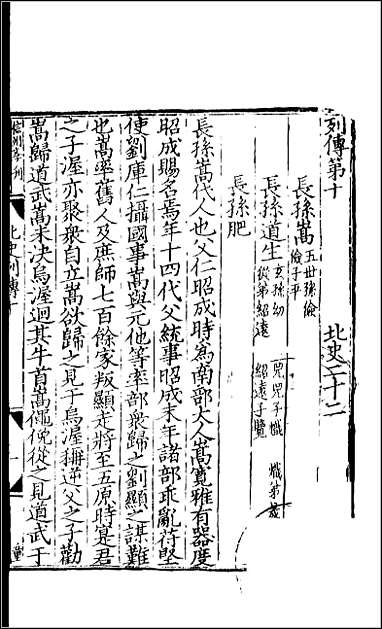 列傳第十　北史二十二
長孫嵩 五世孫儉 儉子平
長孫道生 玄孫幼 從弟紹遠 兕 兕子熾 熾弟晟 紹遠子覽
長孫肥
長孫嵩代人也父仁昭成時爲南部大人嵩寬雅有器度
昭成賜名焉年十四代父統事昭成末年諸部乖亂苻堅
使劉庫仁攝國事嵩與元他等率部衆歸之劉顯之謀難
也嵩率舊人及庶師七百餘家叛顯走將至五原時寔君
之子渥亦聚衆自立嵩欲歸之見于烏渥稱逆父之子勸
嵩歸道武嵩未決烏渥迴其牛首嵩僶俛從之見道武于
北史列傳十